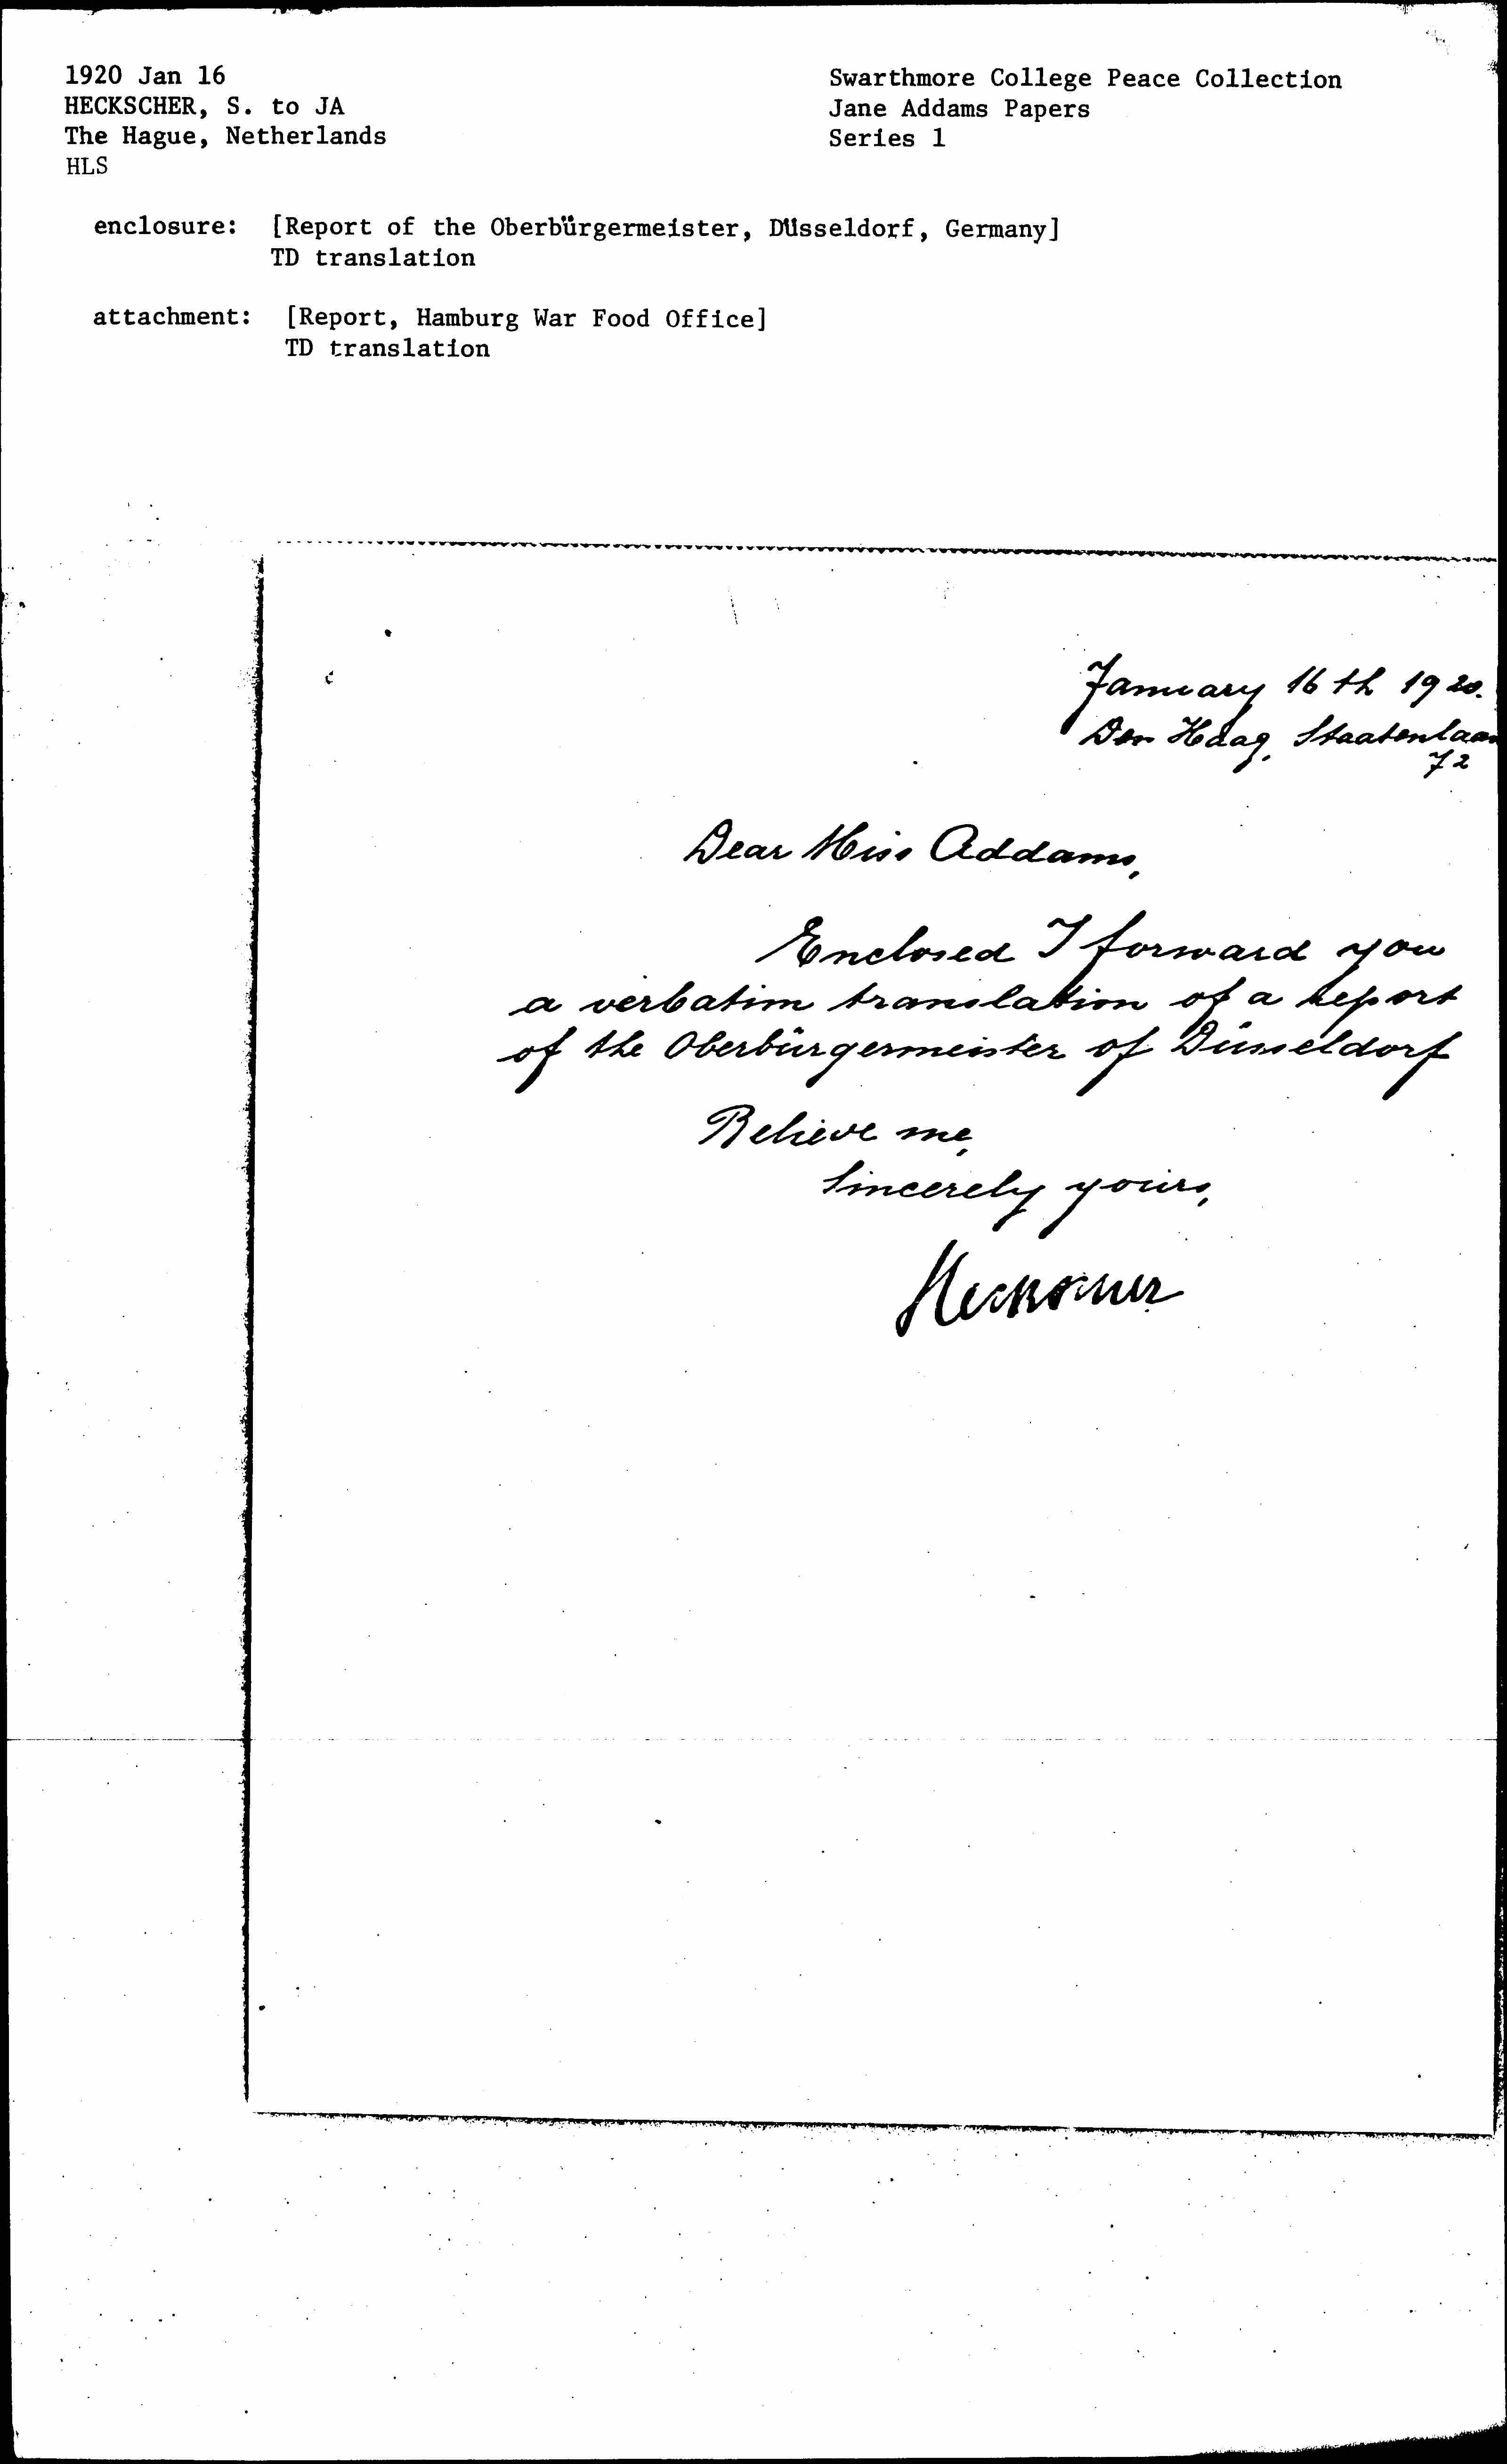 1920 Jan 16
HECKSCHER, S. to JA
The Hague, Netherlands
HLS
Swarthmore College Peace Collection
Jane Addams Papers
Series 1
enclosure: [Report of the Oberbürgermeister, Düsseldorf, Germany]
TD translation
attachment: [Report, Hamburg War Food Office]
TD translation
January 16th 1920.
Den Haag, Staatenlaan
72
Dear Miss Addams,
Enclosed I forward you
a verbatim translation of a report
of the Oberbürgermeister of Düsseldorf
Believe me,
Sincerely yours,
Heckscher